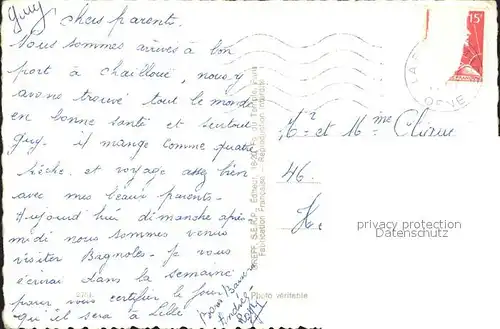 Guy
chers parents.
Nous sommes arrivés à bon
port à Chailloué, nous y
avons trouvé tout le monde
en bonne santé et surtout
guy. il mange comme quatre
et voyage assez bien
avec mes beaux parents.
Aujourd hui dimanche après
midi nous sommes venus
visiter Bagnoles. Je vous
écrirai dans la semaine
pour vous certifier le jour
qu'il sera à Lille
Bons Baisers
Andrée
15F
ORNE
Mr et Mme
46.
privacy protection
Datenschutz
Fabrication Française - Reproduction interdite
Photo véritable